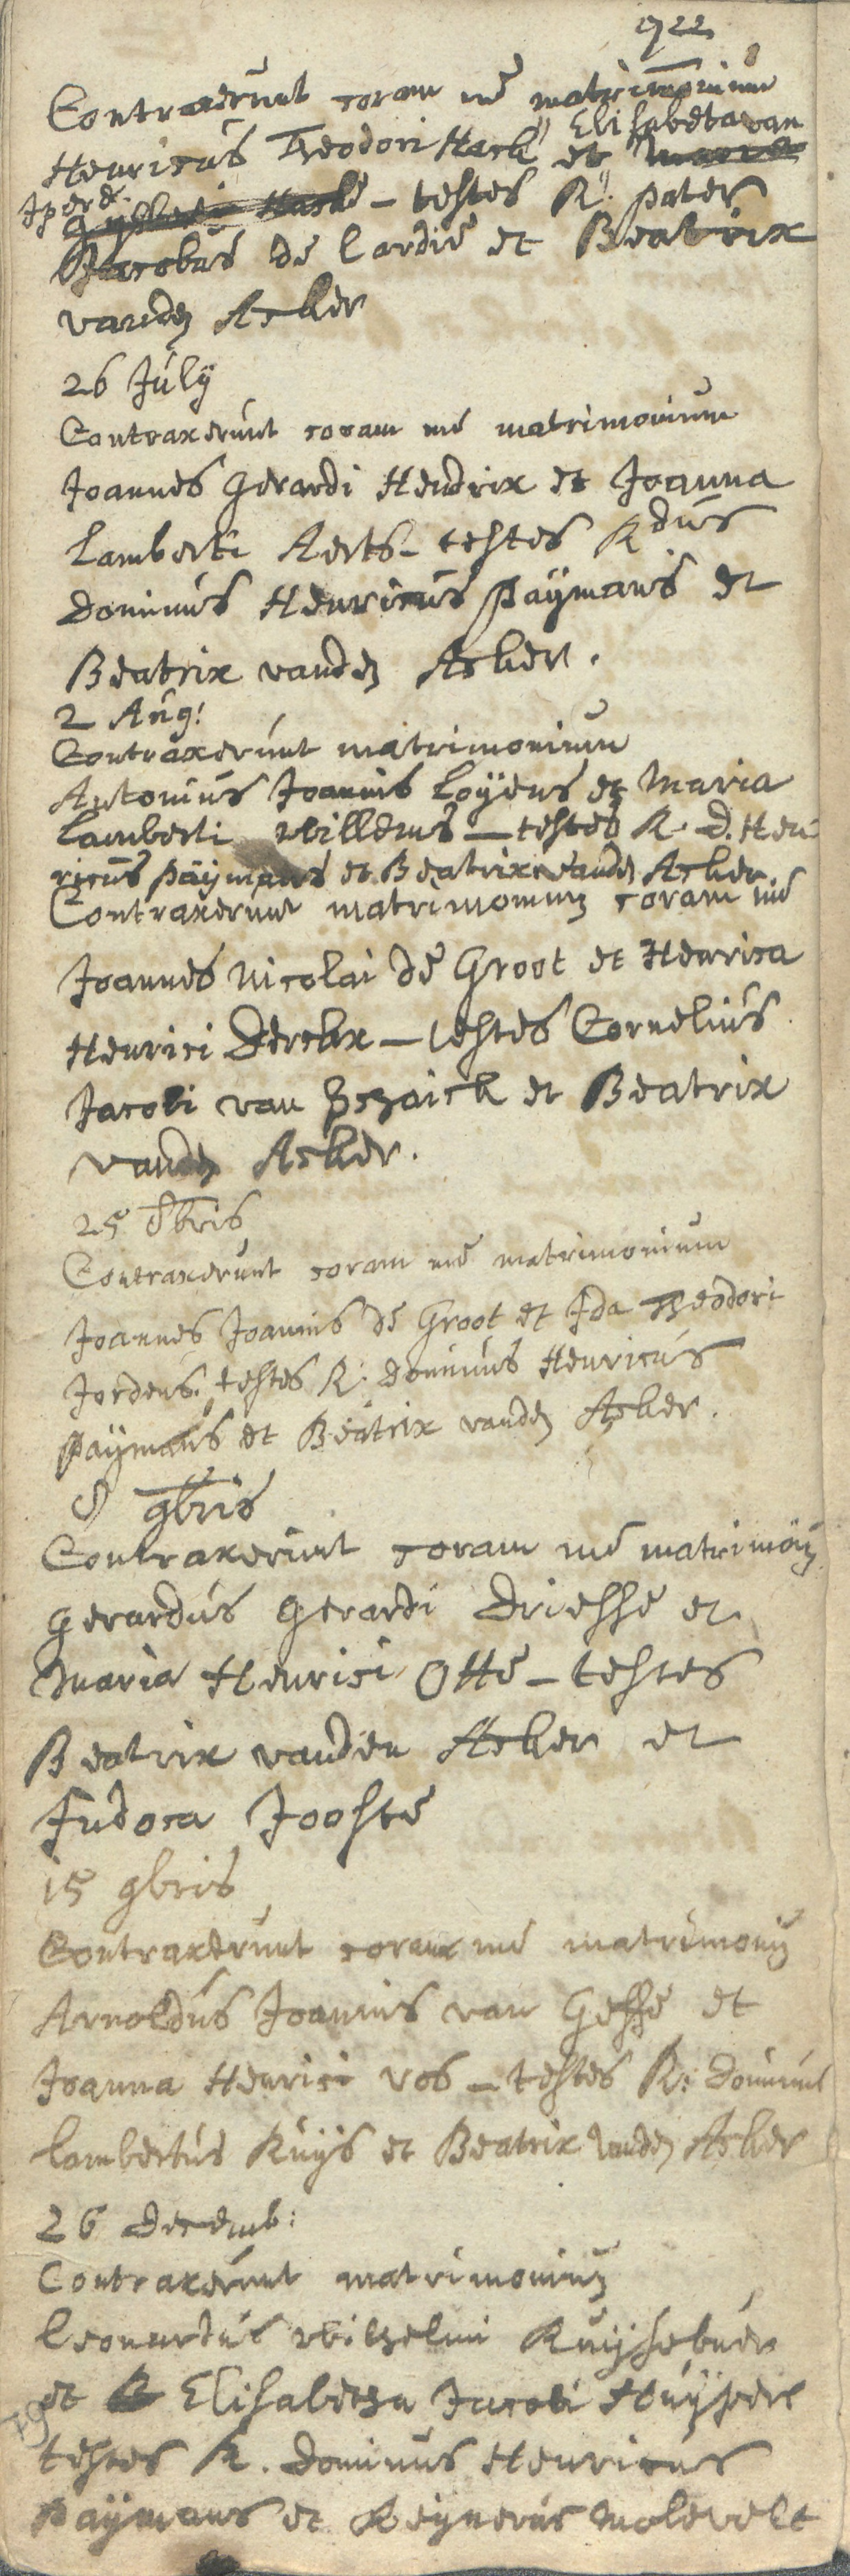 1722
Contraxerunt coram me matrimonium
Henricus Theodori Hack et Elisabeta van
Iperd. - testes R: pater
Jacobus de Lardie et Beatrix
vanden Acker
26 July
Contraxerunt coram me matrimonium
Joannes Gerardi Hendrix et Joanna
Lamberti Aerts - testes Rdus
Dominus Henricus Paÿmans et
Beatrix vanden Acker.
2 Aug:
Contraxerunt matrimonium
Antonius Joannis Loÿens et Maria
Lamberti Willems - testes R. D. Hen
ricus Paÿmans et Beatrix vanden Acker.
Contraxerunt matrimonium coram me
Joannes Nicolai de Groot et Henrica
Henrici Derckx - testes Cornelius
Jacobi van et Beatrix
vanden Acker.
25 8bris
Contraxerunt coram me matrimonium
Joannes Joannis de Groot et Ida Theodori
Jordens. testes R: Dominus Henricus
Paÿmans et Beatrix vanden Acker.
8 9bris
Contraxerunt coram me matrimōn
Gerardus Gerardi Driesse et
Maria Henrici Otte - testes
Beatrix vanden Acker et
Judoca Jooste
15 9bris
Contraxerunt coram me matrimoniū
Arnoldus Joannis van Gesse et
Joanna Henrici Vos - testes R: Dominus
Lambertus Kuÿs et Beatrix vanden Acker
26 Decemb:
Contraxerunt matrimonium
Leonardus Wilhelmi
et Elisabetha Jacobi
testes R. Dominus Henricus
Paÿmans et Reÿnerus Molevelt